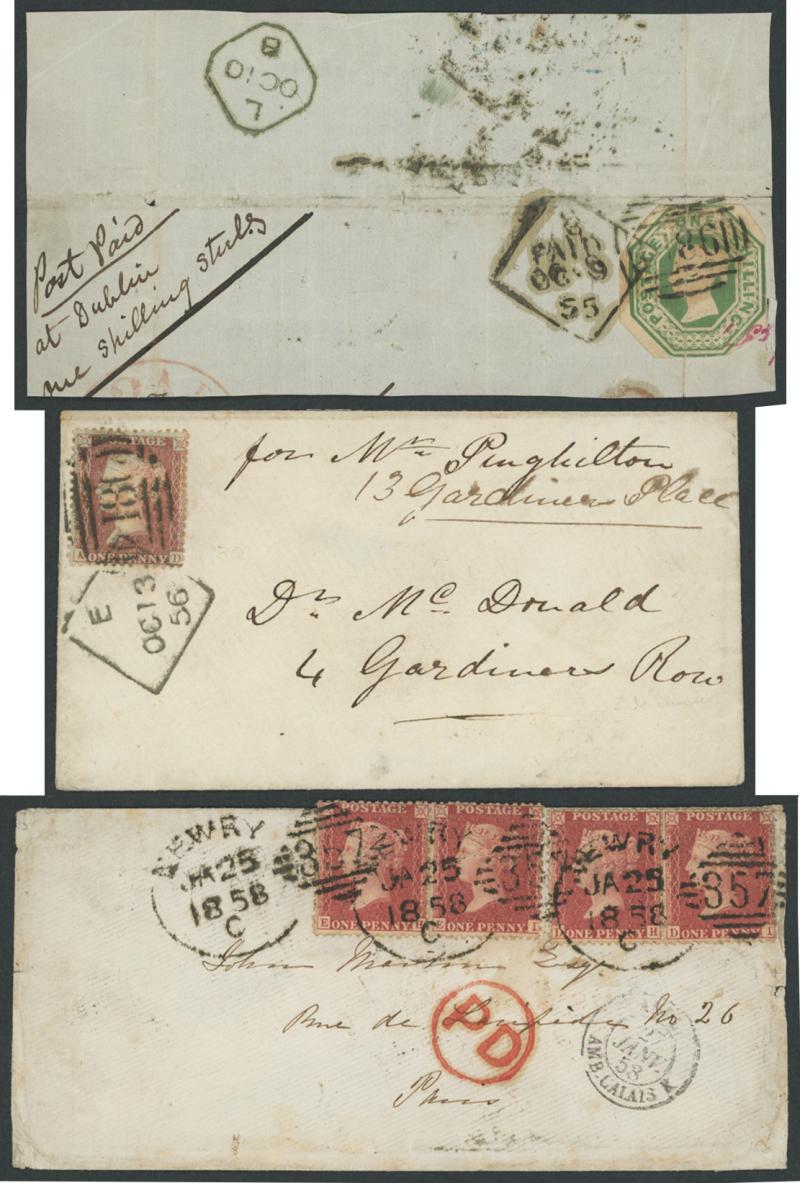 B
OC 10
L
Post Paid
at Dublin
one shilling
PAID
OC 9
55
POSTAGE ONE SHILLING
186
POSTAGE
A ONE PENNY D
186
E
OC 13
56
for Mrs
13 Gardiners Place
Dr. Mc. Donald
4 Gardiners Row
NEWRY
JA 25
18 58
C
POSTAGE
E ONE PENNY H
POSTAGE
E ONE PENNY I
POSTAGE
D ONE PENNY H
POSTAGE
D ONE PENNY I
357
NEWRY
JA 25
18 58
C
357
NEWRY
JA 25
18 58
C
357
John Esq.
Rue de No 26
Paris
PD
JANV.
58
AMB. CALAIS K